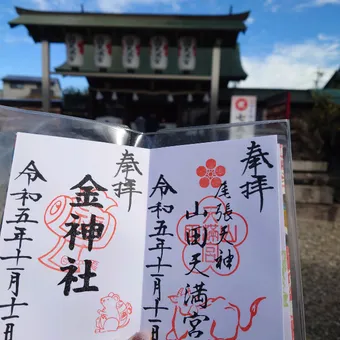 奉拝
尾張天神
山田天満宮
令和五年十一月十一日
奉拝
金神社
令和五年十一月十一日